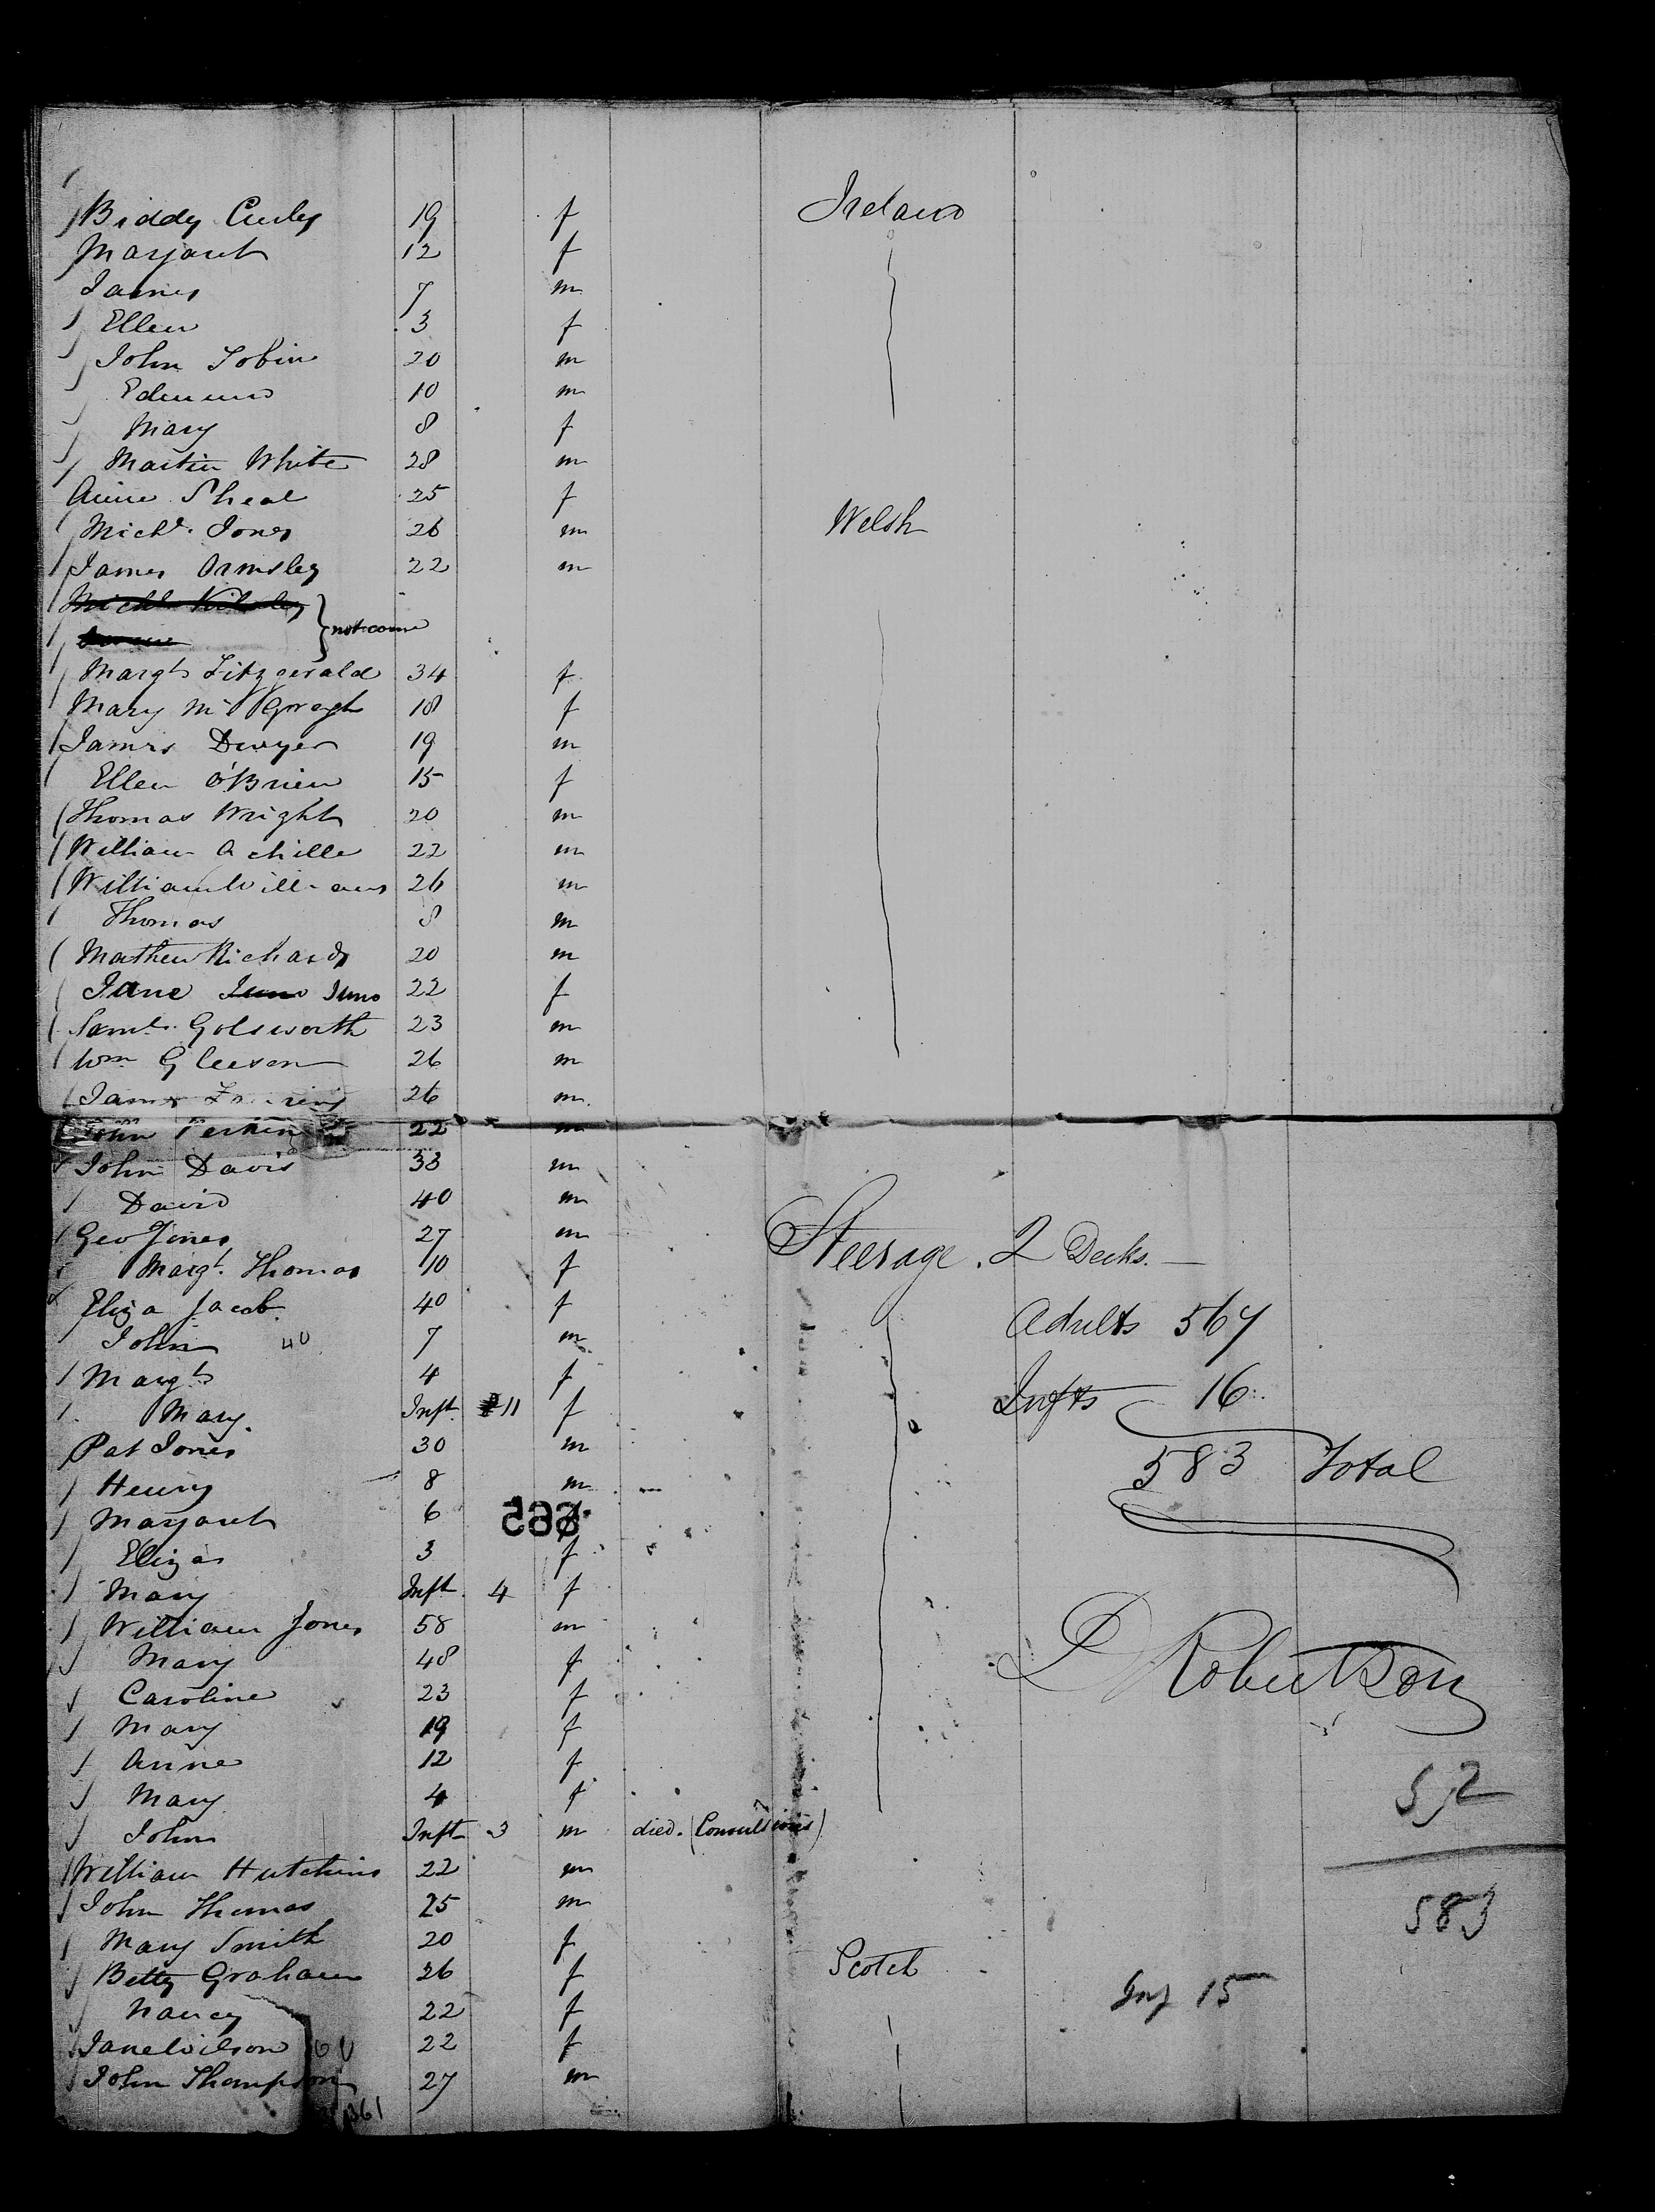 Biddy Curley 19 f Ireland
Margaret 12 f
James 7 m
Ellen 3 f
John Tobin 20 m
Edmund 10 m
Mary 8 f
Martin White 28 m
Anne Sheal 25 f
Michl. Jones 26 m Welsh
James Ormsley 22 m
Michl
not come
Margt Fitzgerald 34 f
Mary Mc 18 f
James Dwyer 19 m
Ellen O'Brien 15 f
Thomas Wright 20 m
William Achille 22 m
William Williams 26 m
Thomas 8 m
Mathew Richards 20 m
Jane Juno Juno 22 f
Saml. Golsworth 23 m
Wm Gleeson 26 m
James 26 m
John Perkin 22 m
John Davis 33 m
David 40 m
Geo Jones 27 m
Margt. Thomas 10 f
Eliza Jacob 40 f
John 40 7 m
Margt 4 f
Mary Inft. 11 f
Pat Jones 30 m
Henry 8 m
Margaret 6 f
583
Eliza 3 f
Mary Inft 4 f
William Jones 58 m
Mary 48 f
Caroline 23 f
Mary 19 f
Anne 12 f
Mary 4 f
John Inft 3 m died. (Convulsions)
William Hutchins 22 m
John Thomas 25 m
Mary Smith 20 f
Betty Graham 26 f Scotch
Nancy 22 f
Jane Wilson 22 f
John Thompson 27 m
Steerage. 2 Decks.
Adults 567
Infts 16
583 Total
D Robertson
52
583
Inf 15